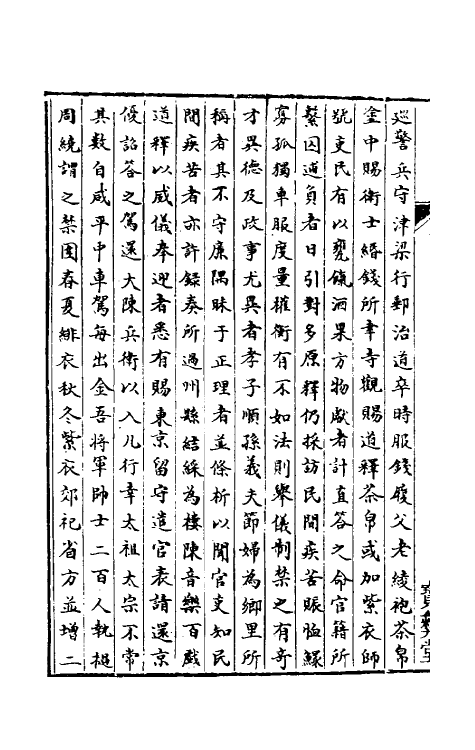 巡警兵守津梁行郵治道卒時服錢履父老綾袍茶帛
塗中賜衛士緡錢所幸寺觀賜道釋茶帛或加紫衣師
號吏民有以甕餼酒果方物獻者計直答之命官籍所
繫囚逋負者日引對多原釋仍採訪民間疾苦賑恤鰥
寡孤獨車服度量權衡有不如法則舉儀制禁之有奇
才異德及政事尤異者孝子順孫義夫節婦為鄉里所
稱者其不守廉隅昧于正理者並條析以聞官吏知民
間疾苦者亦許錄奏所過州縣結綵為樓陳音樂百戲
道釋以威儀奉迎者悉有賜東京留守遣官表請還京
優詔答之駕還大陳兵衛以入凡行幸太祖太宗不常
其數自咸平中車駕每出金吾將軍帥士二百人執檛
周繞謂之禁圍春夏緋衣秋冬紫衣郊祀省方並增二